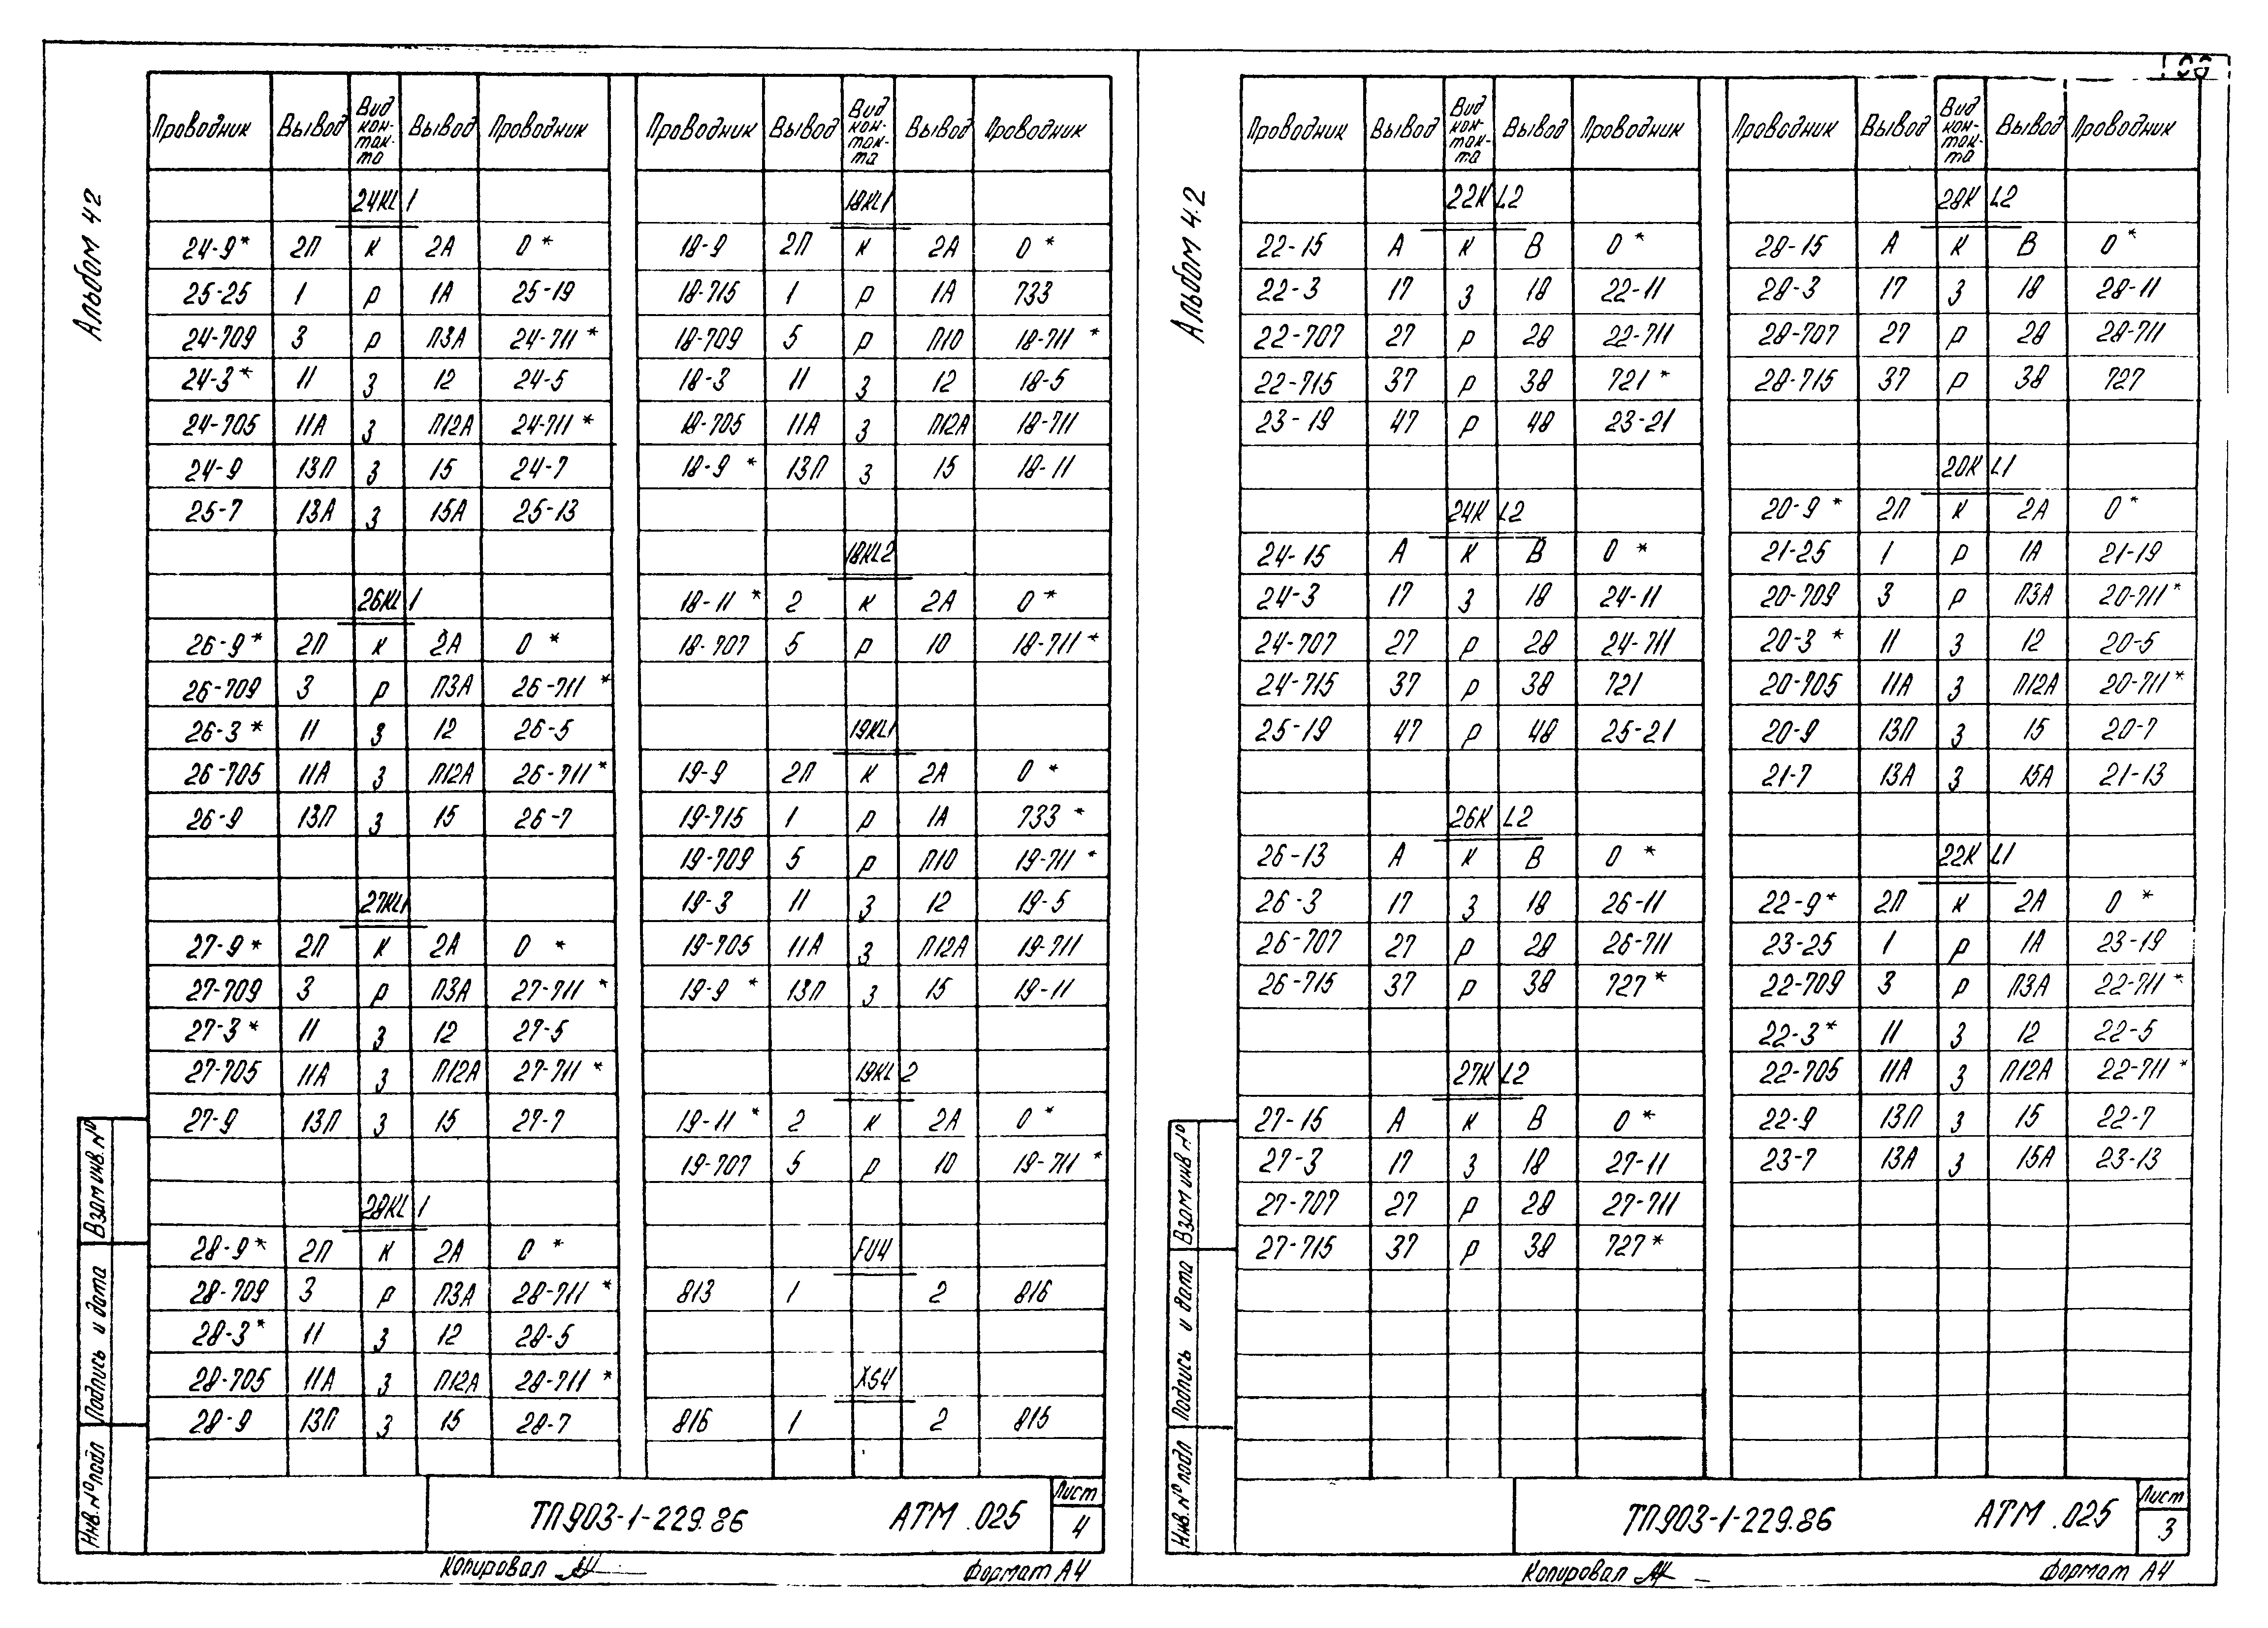 Альбом 42
Проводник Вывод Вид кон-так-та Вывод Проводник
24KL1
24-9* 2П К 2А 0*
25-25 1 Р 1А 25-19
24-709 3 Р П3А 24-711*
24-3* 11 З 12 24-5
24-705 11А З П12А 24-711*
24-9 13П З 15 24-7
25-7 13А З 15А 25-13
26KL1
26-9* 2П К 2А 0*
26-709 3 Р П3А 26-711*
26-3* 11 З 12 26-5
26-705 11А З П12А 26-711*
26-9 13П З 15 26-7
27KL1
27-9* 2П К 2А 0*
27-709 3 Р П3А 27-711*
27-3* 11 З 12 27-5
27-705 11А З П12А 27-711*
27-9 13П З 15 27-7
28KL1
28-9* 2П К 2А 0*
28-709 3 Р П3А 28-711*
28-3* 11 З 12 28-5
28-705 11А З П12А 28-711*
28-9 13П З 15 28-7
Проводник Вывод Вид кон-так-та Вывод Проводник
18KL1
18-9 2П К 2А 0*
18-715 1 Р 1А 733
18-709 5 Р П10 18-711*
18-3 11 З 12 18-5
18-705 11А З П12А 18-711
18-9* 13П З 15 18-11
18KL2
18-11* 2 К 2А 0*
18-707 5 Р 10 18-711*
19KL1
19-9 2П К 2А 0*
19-715 1 Р 1А 733*
19-709 5 Р П10 19-711*
19-3 11 З 12 19-5
19-705 11А З П12А 19-711
19-9* 13П З 15 19-11
19KL2
19-11* 2 К 2А 0*
19-707 5 Р 10 19-711*
FU4
813 1 2 816
XS4
816 1 2 815
Взам инв. №
Подпись и дата
Инв. № подл
ТП903-1-229.86 АТМ.025
Лист
4
Копировал
Формат А4
Альбом 4.2
Проводник Вывод Вид кон-так-та Вывод Проводник
22KL2
22-15 А К В 0*
22-3 17 З 18 22-11
22-707 27 Р 28 22-711
22-715 37 Р 38 721*
23-19 47 Р 48 23-21
24KL2
24-15 А К В 0*
24-3 17 З 18 24-11
24-707 27 Р 28 24-711
24-715 37 Р 38 721
25-19 47 Р 48 25-21
26KL2
26-13 А К В 0*
26-3 17 З 18 26-11
26-707 27 Р 28 26-711
26-715 37 Р 38 727*
27KL2
27-15 А К В 0*
27-3 17 З 18 27-11
27-707 27 Р 28 27-711
27-715 37 Р 38 727*
Проводник Вывод Вид кон-так-та Вывод Проводник
28KL2
28-15 А К В 0*
28-3 17 З 18 28-11
28-707 27 Р 28 28-711
28-715 37 Р 38 727
20KL1
20-9* 2П К 2А 0*
21-25 1 Р 1А 21-19
20-709 3 Р П3А 20-711*
20-3* 11 З 12 20-5
20-705 11А З П12А 20-711*
20-9 13П З 15 20-7
21-7 13А З 15А 21-13
22KL1
22-9* 2П К 2А 0*
23-25 1 Р 1А 23-19
22-709 3 Р П3А 22-711*
22-3* 11 З 12 22-5
22-705 11А З П12А 22-711*
22-9 13П З 15 22-7
23-7 13А З 15А 23-13
Взам инв. №
Подпись и дата
Инв. № подл
ТП903-1-229.86 АТМ.025
Лист
3
Копировал
Формат А4